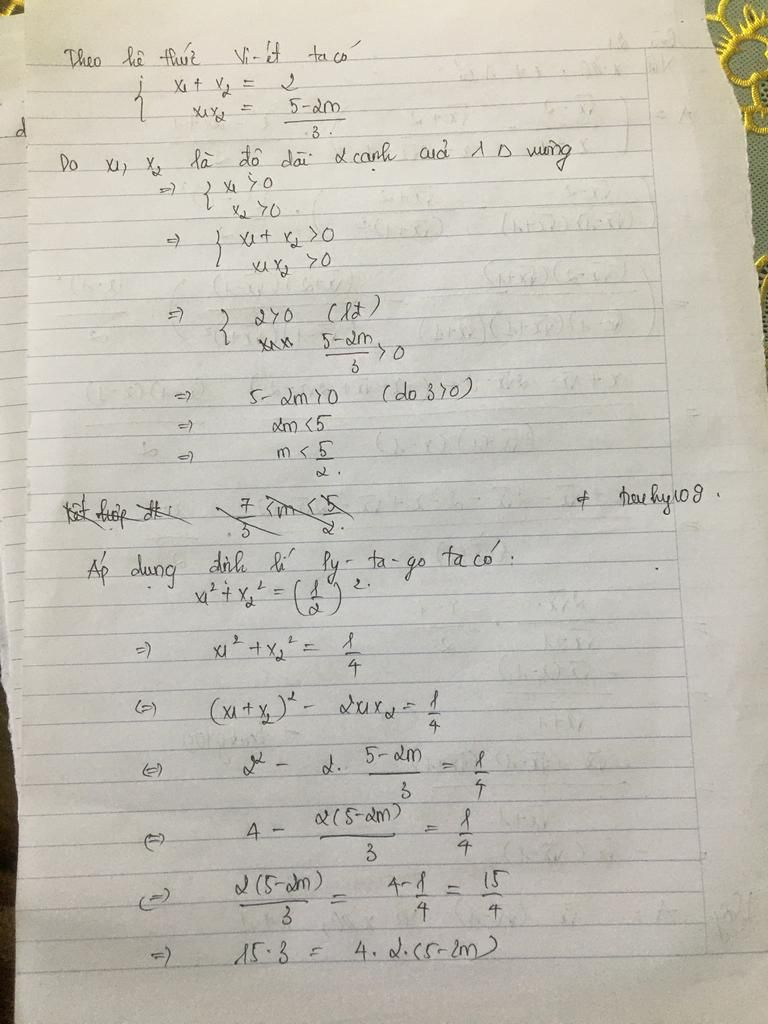 Theo hệ thức Vi-ét ta có
{ x₁ + x₂ = 2
x₁x₂ = (5-2m)/3.
Do x₁, x₂ là độ dài 2 cạnh của 1 Δ vuông
=> { x₁ > 0
x₂ > 0.
=> { x₁ + x₂ > 0
x₁x₂ > 0
=> { 2 > 0 (lđ)
(5-2m)/3 > 0
=> 5 - 2m > 0 (do 3 > 0)
=> 2m < 5
=> m < 5/2.
7/3 < m < 5/2.
Áp dụng định lí Py-ta-go ta có:
x₁² + x₂² = (1/2)².
=> x₁² + x₂² = 1/4
<=> (x₁ + x₂)² - 2x₁x₂ = 1/4
<=> 2² - 2. (5-2m)/3 = 1/4
<=> 4 - 2(5-2m)/3 = 1/4
<=> 2(5-2m)/3 = 4-1/4 = 15/4
=> 15.3 = 4.2.(5-2m)